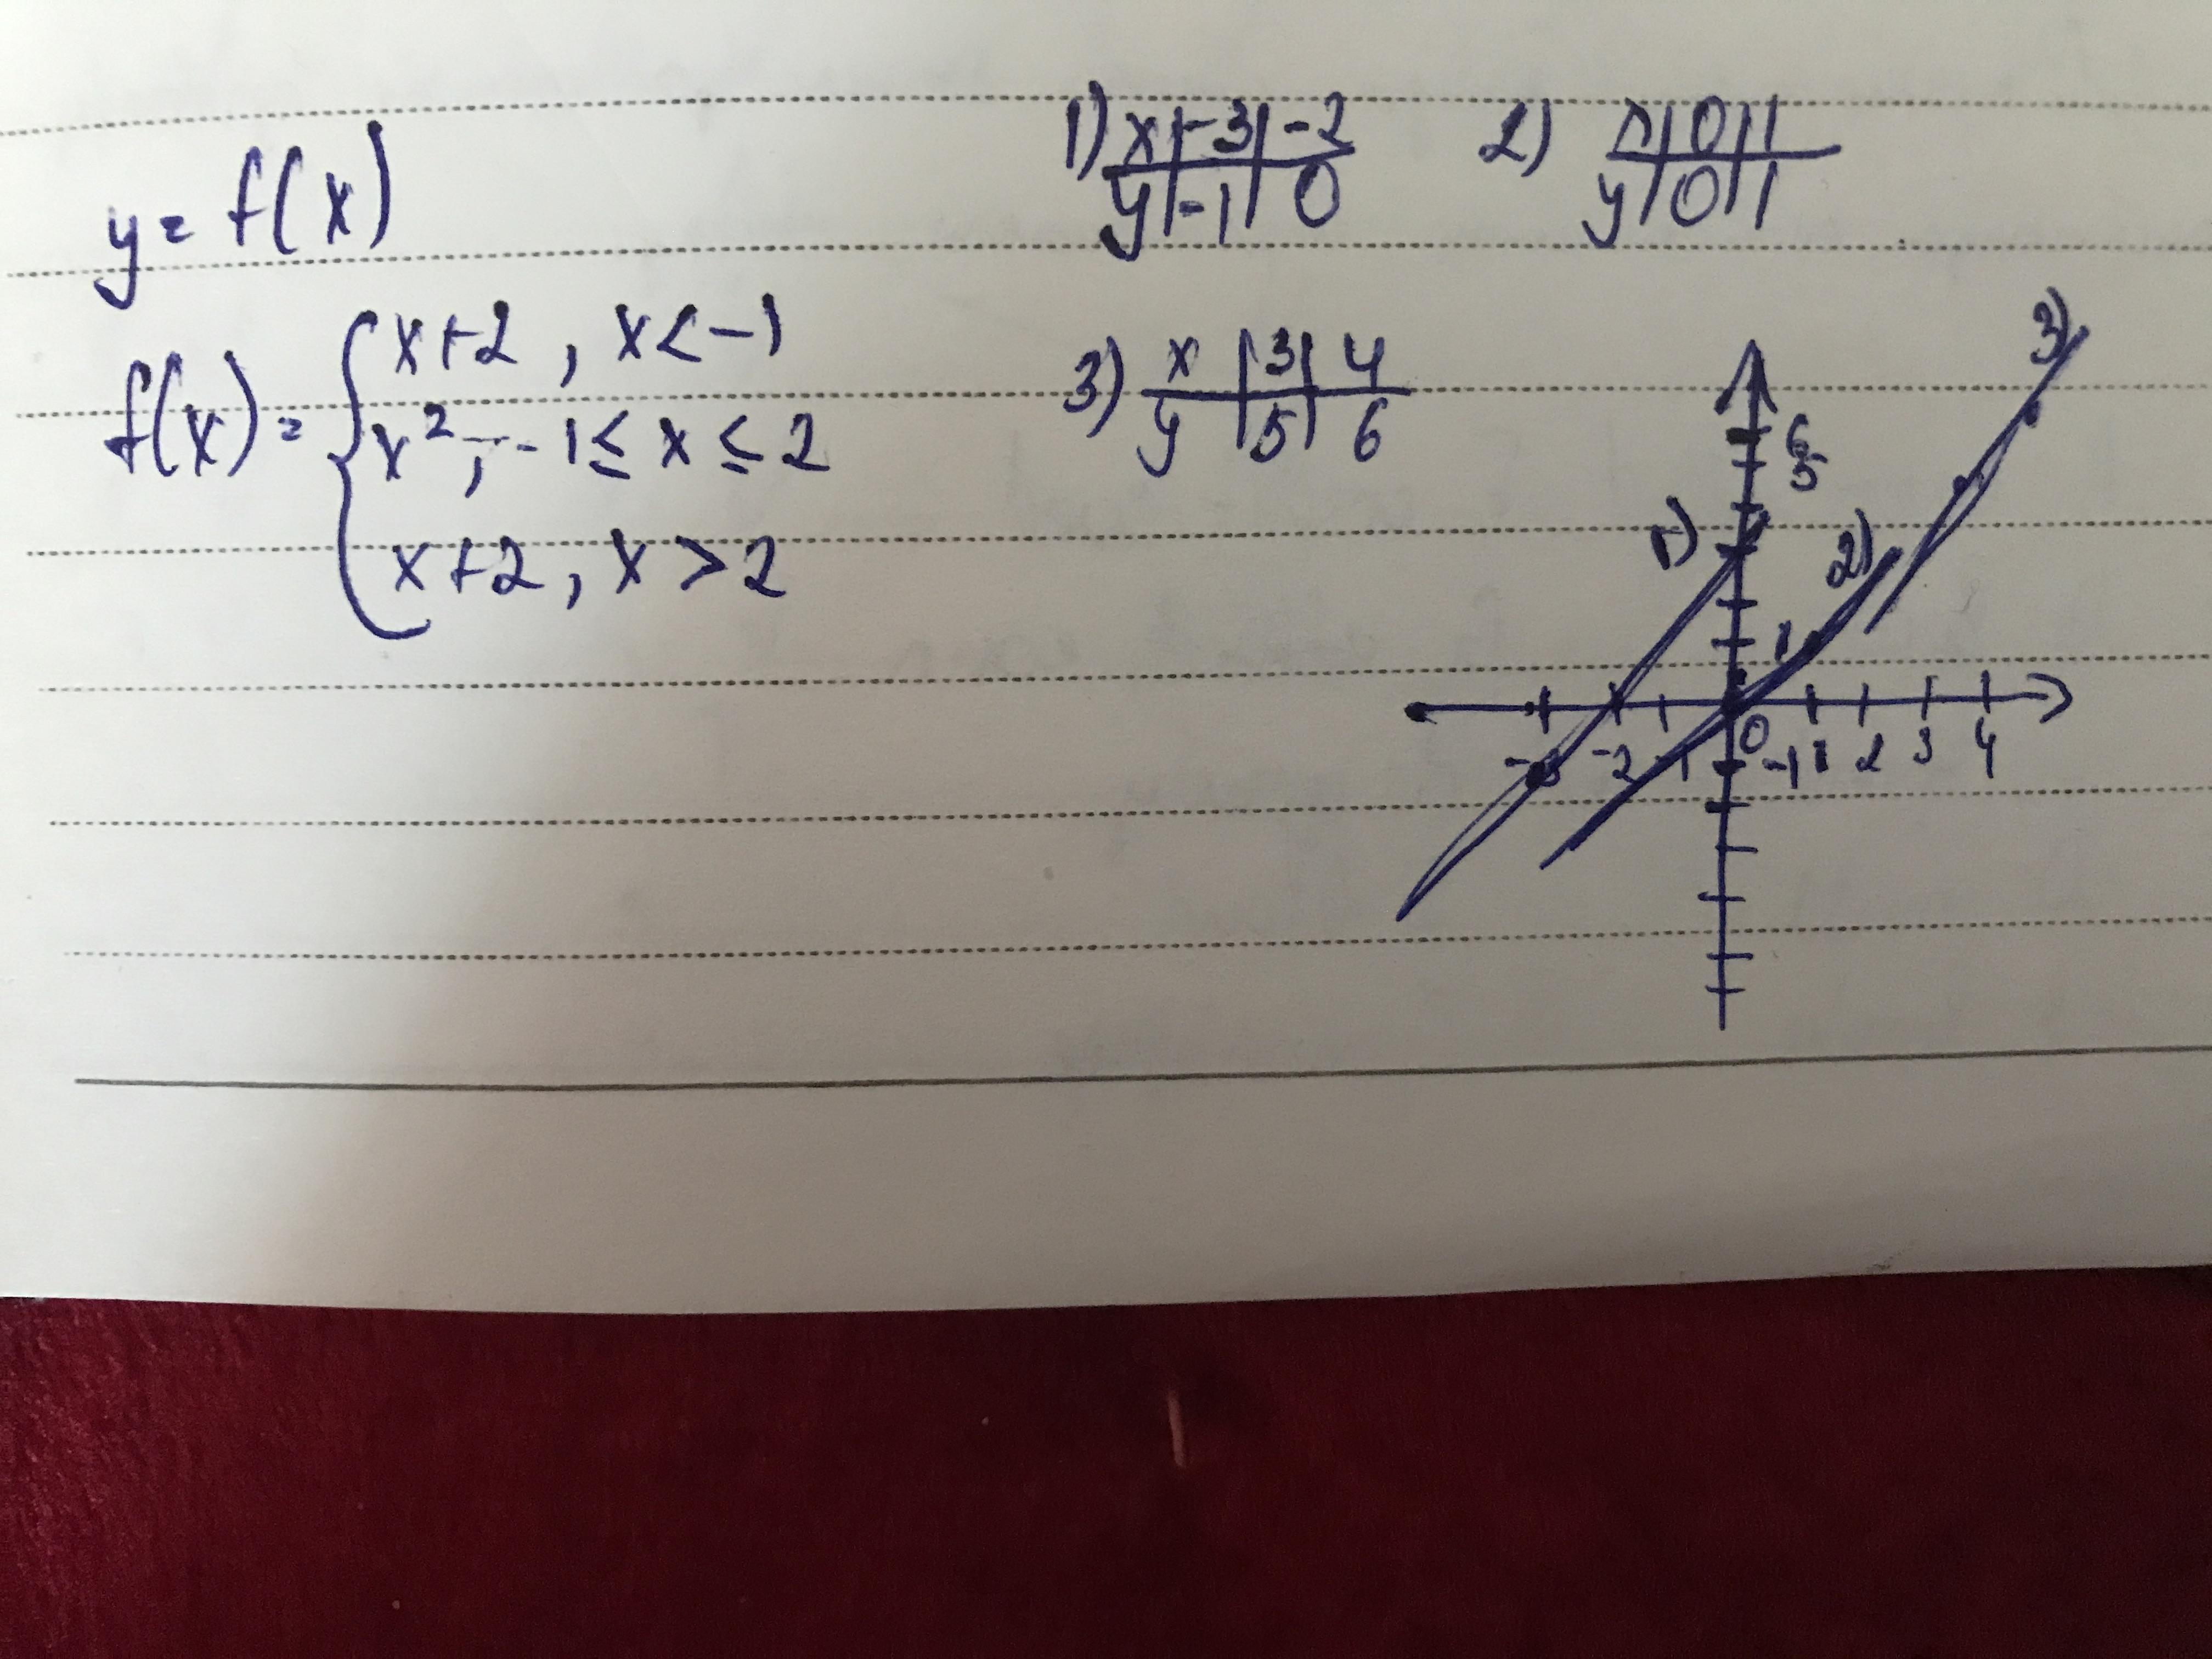 y = f(x)
f(x) = { x+2 , x < -1
x², -1 ≤ x ≤ 2
x+2, x > 2
1) x | -3 | -2
y | -1 | 0
2) x | 0 | 1
y | 0 | 1
3) x | 3 | 4
y | 5 | 6
3)
6
5
1)
2)
1
-3 -2 -1 0 -1 1 2 3 4